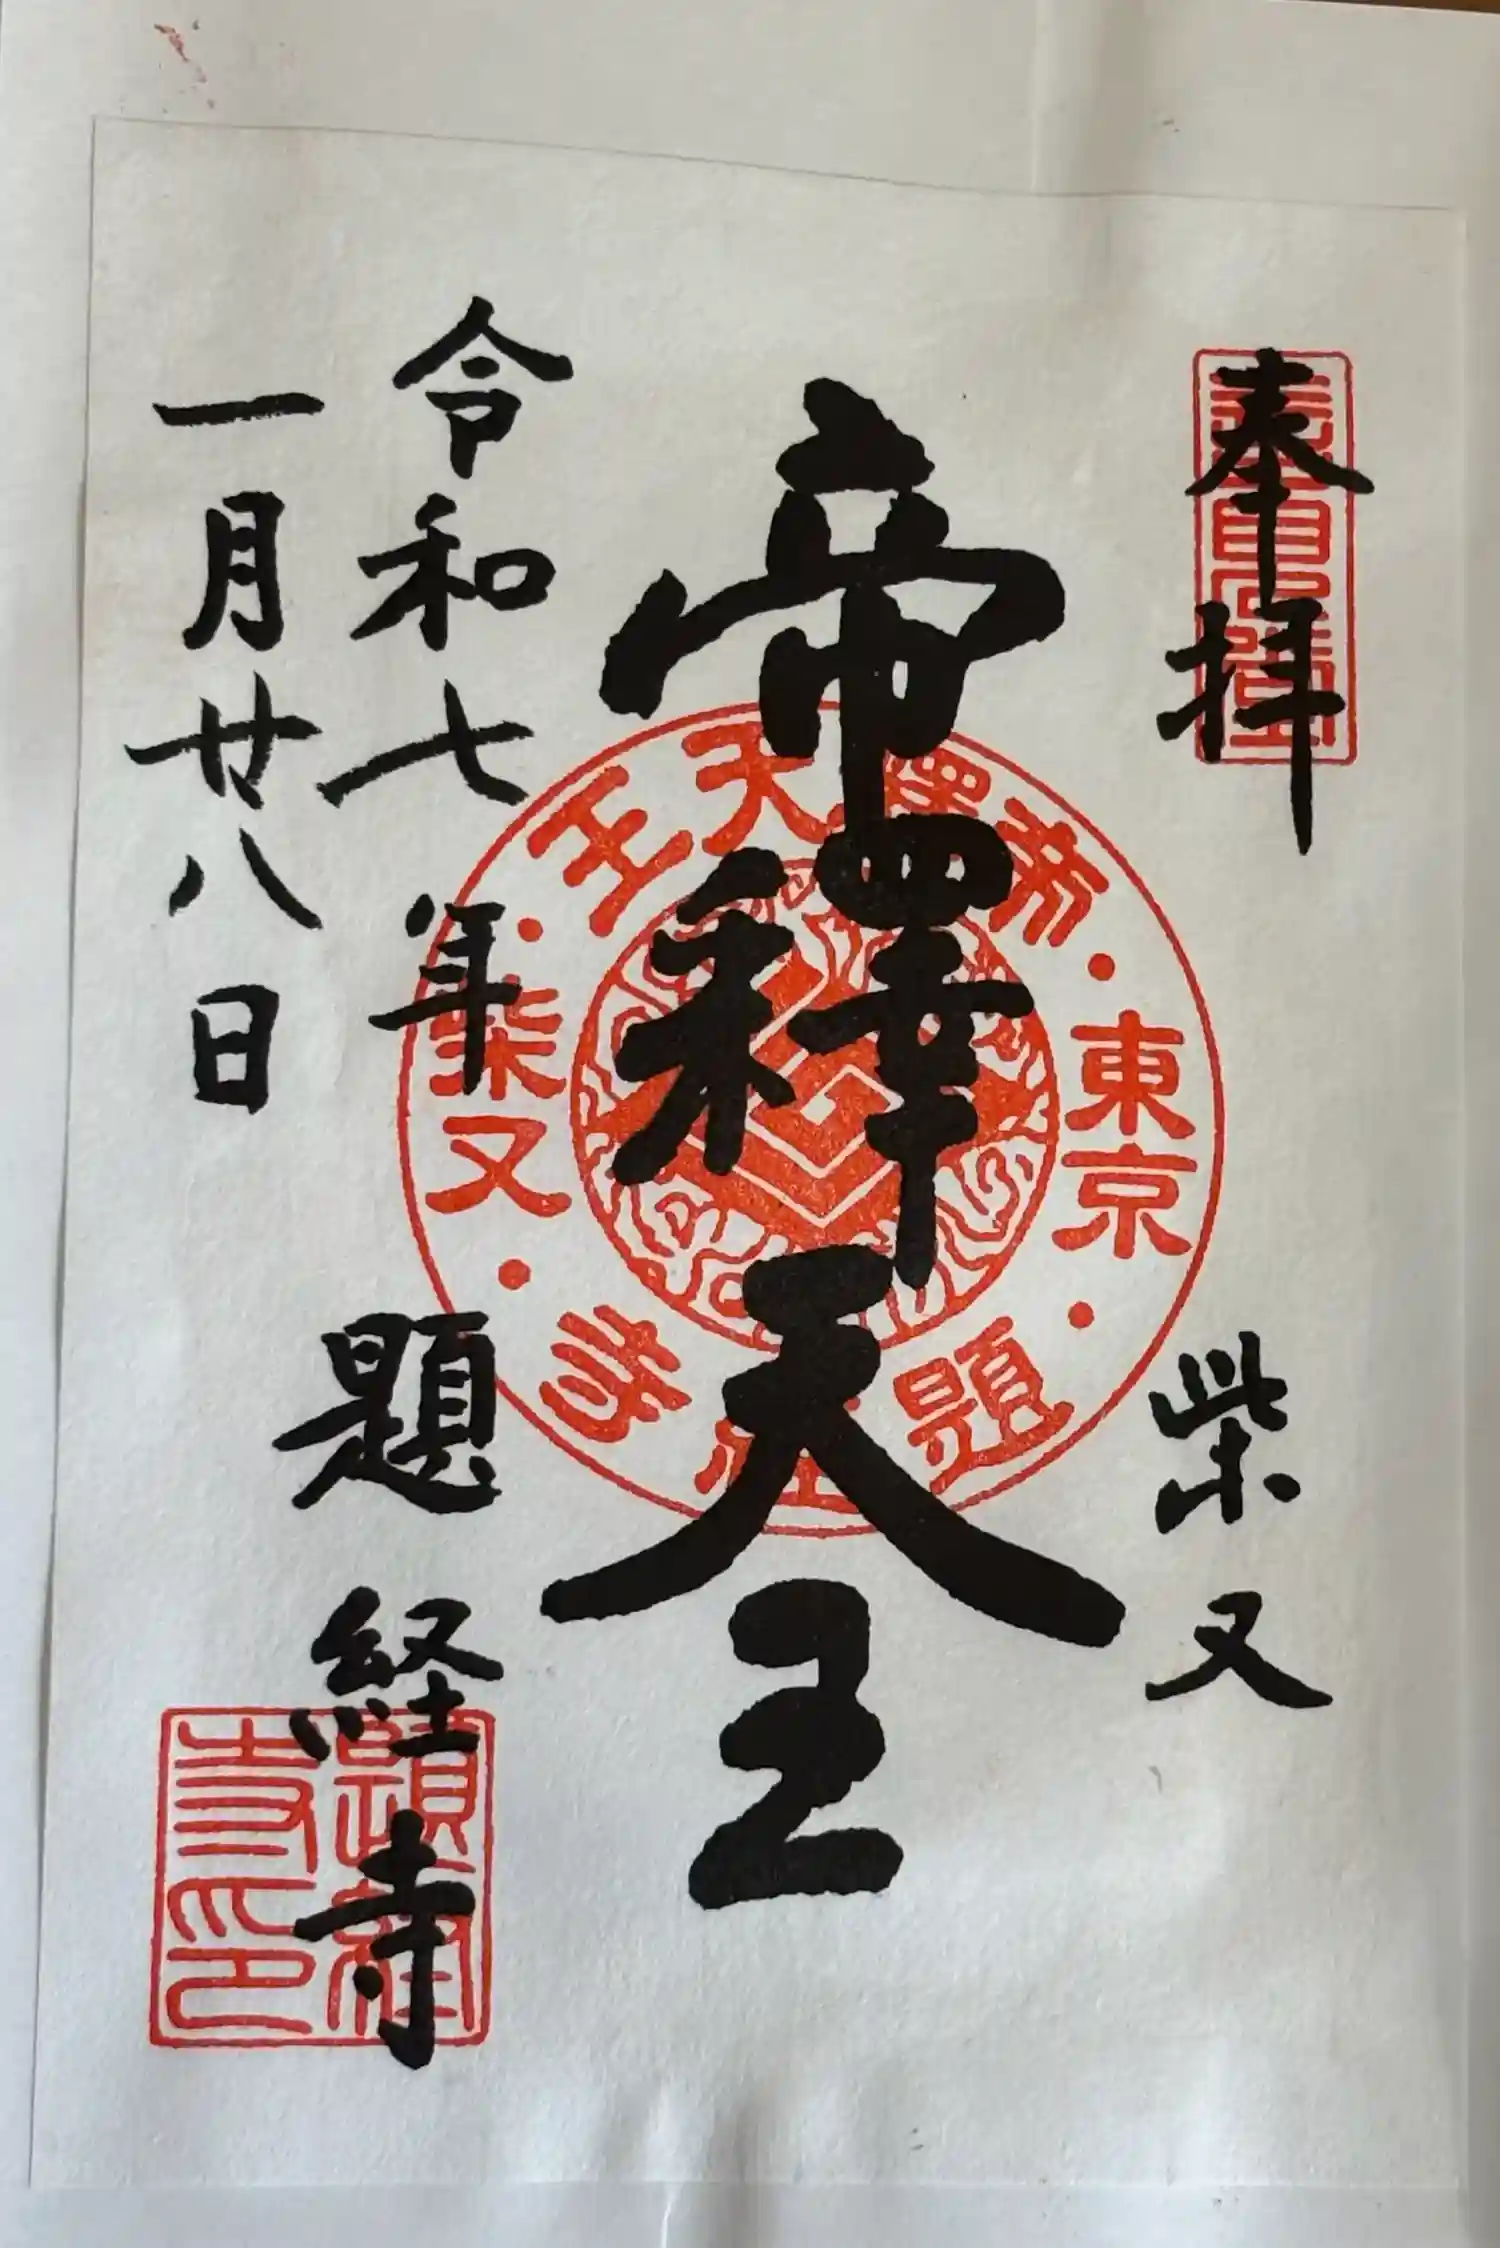 奉拝
柴又
帝釋天王
令和七年
一月廿八日
題経寺
帝釋天王
東京
柴又
題経寺
題経寺印